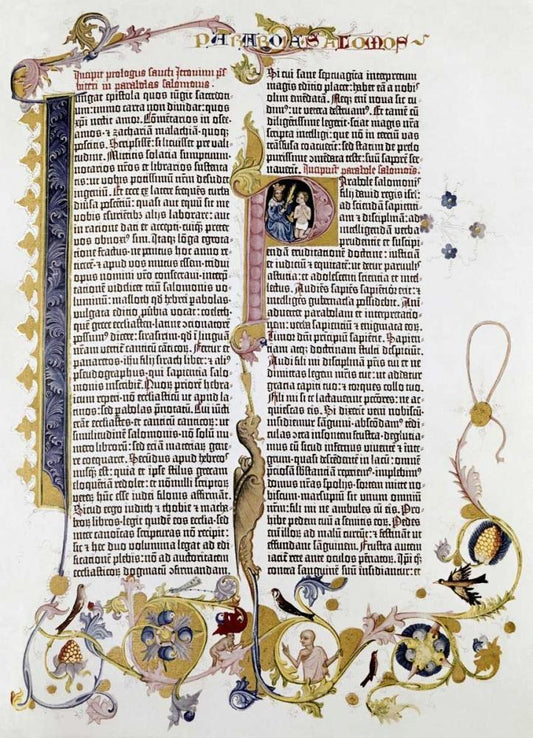 PARABOLAE SALOMONIS
Incipit prologus sancti Jeronimi p̄sbi-
teri in parabolas salomonis.
Jungat epistola quos iungit sacerdo-
cium: immo carta non diuidat: quos
xp̄i nectit amor. Cōmētarios in osee-
amos ⁊ zachariam malachiā quoq̄
poscitis. Scripsissē: si licuisset pre vali-
tudine. Mittitis solacia sumptuum-
notarios n̄ros et librarios sustenta-
tis: ut vobis potissimū n̄rm desudet
ingeniū. Et ecce ex latere frequēs turba
diuersa poscēs: quasi aut equū sit me
vobis esuriētibus alijs laborare: aut
in racione dati et accepti cuiq̄ preter
vos obnoxiꝰ sim. Itaq̄ lōga egrota-
tione fractus ne penitus hoc anno re-
ticerē ⁊ apud vos mutus essem tridui
opus nomini vr̄o consecraui interp̄-
tationē videlicet triū salomonis vo-
luminū: masloth qd̄ hebrei parabolas
vulgata editio ꝓuerbia vocat: coeleth-
que grece ecclesiasten latine ↄcionatorē
possumꝰ dicere: sirasirim qd̄ ī linguā
nr̄am vertit̄ canticū cāticor. Fertur et
panaretos ihū filij sirach liber: ⁊ aliꝰ
pseudographus qui sapientia salo-
monis inscribit̄. Quorꝫ priorē hebra-
icum reperi nō ecclesiasticū ut apud la-
tinos: sed parabolas p̄notatū. Cui iūcti
erāt ecclesiastes et canticū canticorꝫ: ut
similitudinē salomonis nō solū nu-
mero librorꝫ: sed eciā materiarꝫ gene-
re coequaret. Secūdus apud hebreos
nusq̄ est: quia et ipse stilus grecam
eloquētiā redolet: et nōnulli scriptorꝫ
veterꝫ hūc esse iudei filonis affirmāt.
Sicud ergo iudith ⁊ thobie ⁊ macha-
beorꝫ libros legit quidē eos ecclīa sed
inter canonicas scripturas nō recipit:
sic ⁊ hec duo volumina legat ad edi-
ficationē plebis: nō ad auctoritatem
ecclesiasticorꝫ dogmatū ↄfirmandam.
Si cui sane septuaginta interpretum
magis editio placet: habet eā a nobis
olim emēdatā. Neq̄ em̄ noua sic cu-
dimꝰ: ut vetera destruamꝰ. Et tamē cū
diligētissime legerit sciat magis nr̄a
scripta intelligi: que nō in terciū vas
trāsfusa coacuerīt: sed statim de prelo
purissime ↄmēdata teste: suū saporē ser-
uauerīt. Incipiunt parabole salomonis.
Parabole salomonis
filij dauid regis isrl̄:
ad sciendā sapienti-
am ⁊ disciplinā: ad
intelligendā verba
prudentie et suscipi-
endā eruditationē doctrine: iusticiā
et iudiciū ⁊ equitatē: ut detur paruulis
astutia: et adolescenti scientia et intel-
lectus. Audiēs sapiēs sapientior erit: ⁊
intelligēs gubernacla possidebit. Ani-
aduertet parabolam et interpretatio-
nem: verba sapientiū ⁊ enigmata eorꝫ.
Timor dn̄i principiū sapientie. Sapien-
tiam atq̄ doctrinam stulti despiciūt.
Audi fili mi disciplinā pr̄is tui et ne
dimittas legem mr̄is tue: ut addatur
gracia capiti tuo: ⁊ torques collo tuo.
Fili mi si te lactauerint pctōres: ne ac-
quiescas eis. Si dixerīt veni nobiscū-
insidiemur sanguini· abscōdamꝰ tedi-
culas ↄtra insontem frustra· deglutia-
mus eū sicud infernus viuente ⁊ inte-
grum· quasi descēdentē in lacū: omnē
preciosā substantiā reperiemꝰ· implebimꝰ
domus nr̄as spolijs· sortem mitte no-
biscum· marsupiū sit unum omnium
nr̄m: fili mi ne ambules cū eis. Pro-
hibe pedem tuū a semitis eorꝫ. Pedes
em̄ illorꝫ ad malū currūt: ⁊ festināt ut
effundant sanguinem. Frustra autem
iacit̄ rete ante oculos pēnatorꝫ. Ipi q̄q̄
contra sanguinē suū insidiantur: et